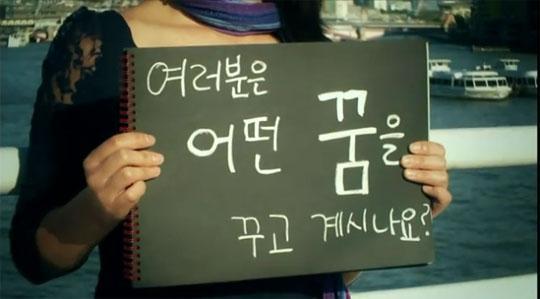 여러분은
어떤 꿈을
꾸고 계시나요?